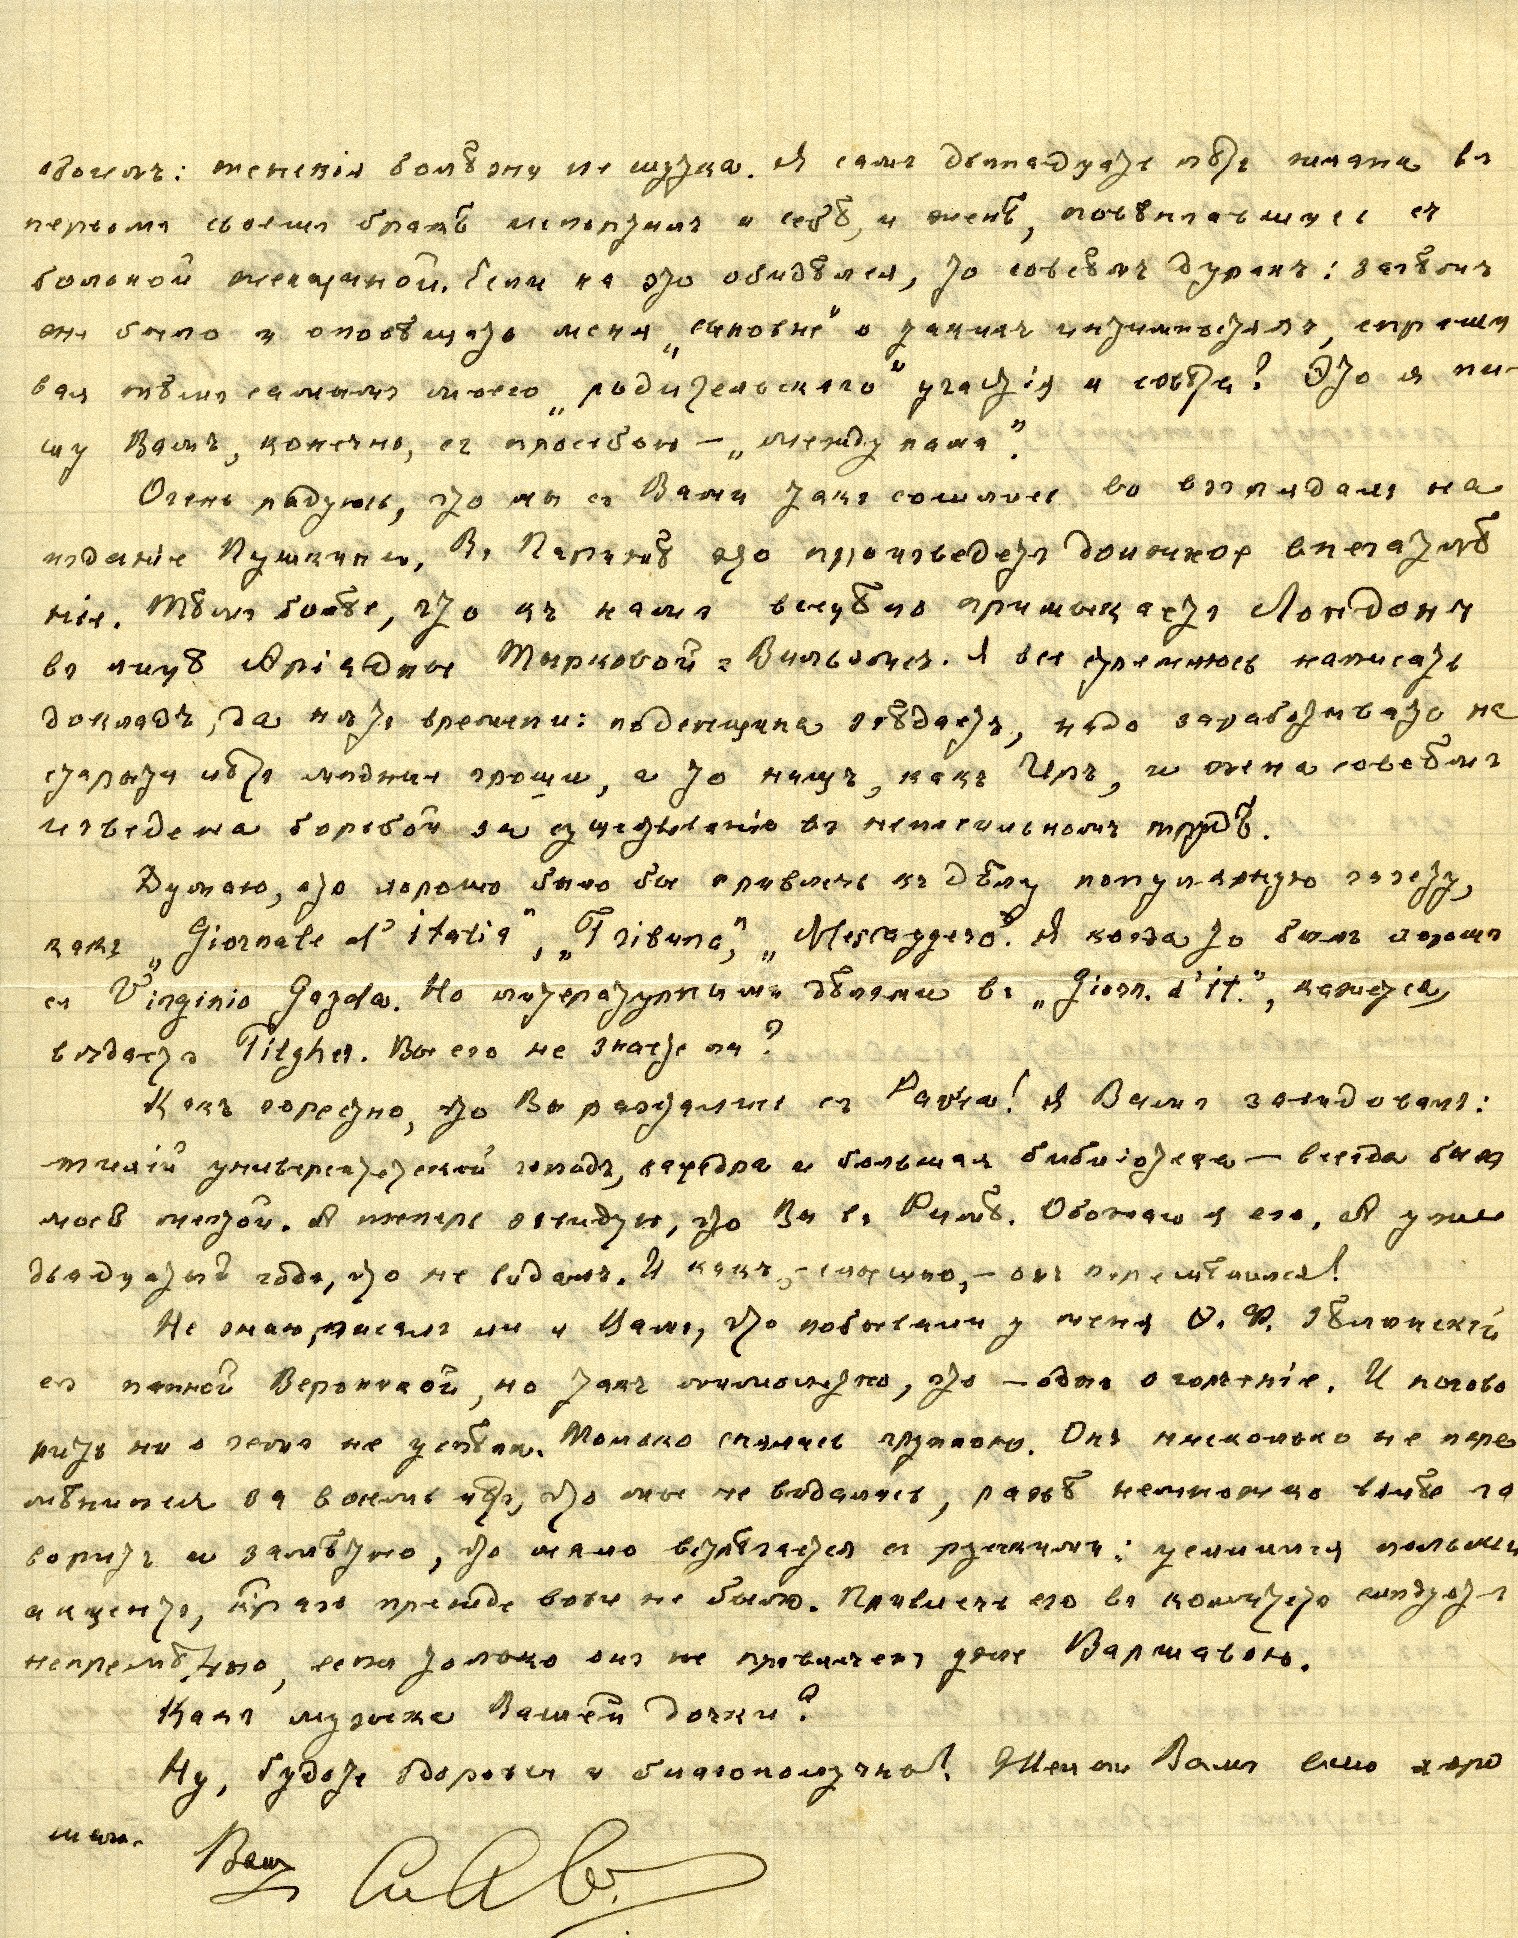 обоимъ: женскія болѣзни не шутка. Я самъ двѣнадцать лѣтъ жизни въ
первомъ своемъ бракѣ испортилъ и себѣ, и женѣ, повѣнчавшись съ
больной женщиной. Если на это обидѣлся, то совсѣмъ дуракъ: зачѣмъ
же было и оповѣщать меня „сыновне“ о такихъ интимностяхъ, спраши
вая тѣмъ самымъ моего „родительскаго“ участія и совѣта? Это я пи-
шу Вамъ, конечно, съ просьбою — „между нами“.
Очень радуюсь, что мы съ Вами такъ сошлись во взглядахъ на
изданіе Пушкина. Въ Парижѣ это произведетъ должное впечатлѣ
ніе. Тѣмъ болѣе, что къ намъ всецѣло примыкаетъ Лондонъ
въ лицѣ Аріадны Тырковой-Вильямсъ. Я все стремлюсь написать
докладъ, да нѣтъ времени: поденщина заѣдаетъ, надо зарабатывать на
старости лѣтъ мѣдные гроши, а то нищъ, какъ Иръ, и жена совсѣмъ
изведена борьбой за существованіе въ непосильномъ трудѣ.
Думаю, что хорошо было бы привлечь къ дѣлу популярную газету,
какъ „Giornale d'Italia“, „Tribuna“, „Messaggero“. Я когда то былъ хорошъ
съ Virginio Gayda. Но литературными дѣлами въ „Giorn. d'It.“, кажется,
вѣдаетъ Tilgher. Вы его не знаете ли?
Какъ горестно, что Вы разстались съ Pavia! Я Вамъ завидовалъ:
тихій университетскій городъ, каѳедра и большая библіотека — всегда были
моей мечтой. А теперь завидую, что Вы въ Римѣ. Обожаю я его. А уже
двадцатый годъ, что не видалъ. И какъ, — слышно, — онъ перемѣнился!
Не знаю, писалъ ли я Вамъ, что побывали у меня Ѳ. Ф. Зѣлинскій
съ панной Вероникой, но такъ мимолетно, что — одно огорченіе. И погово
рить ни о чемъ не успѣли. Только снялись группою. Онъ нисколько не пере
мѣнился за восемь лѣтъ, что мы не видались, развѣ немножко вялѣе го
воритъ и замѣтно, что мало встрѣчается съ русскими: усилился польскій
акцентъ, котораго прежде вовсе не было. Привлечь его въ комитетъ слѣдуетъ
непремѣнно, если только онъ не привлеченъ уже Варшавою.
Какъ музыка Вашей дочки?
Ну, будьте здоровы и благополучны! Желаю Вамъ всего хоро
шаго.
Вашъ